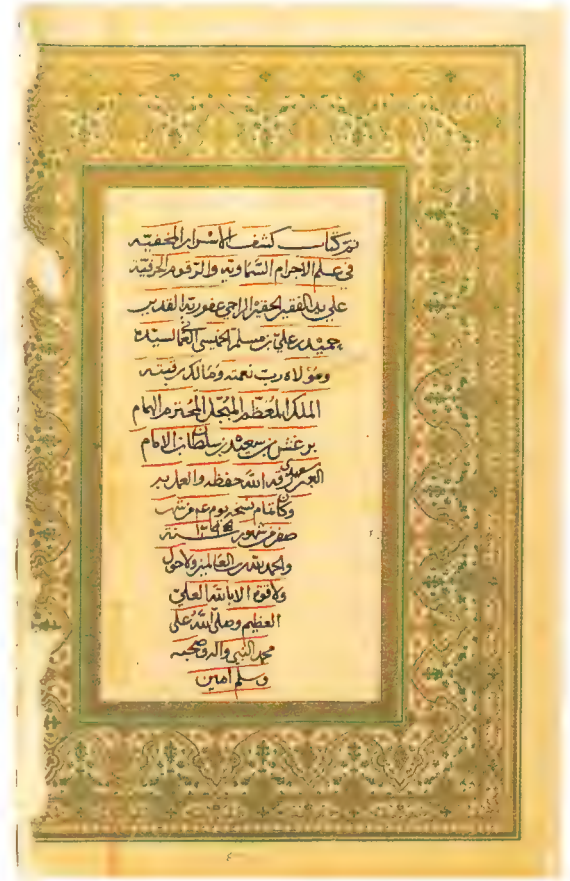 تم كتاب كشف الاسرار المخفيّه
في علم الاجرام السّماويه والرّقوم الحرفيّة
على يد الفقير الحقير الراجي عفو ربّه القدير
حميد بن عليّ بن مسلم الخميسي لسيّده
ومولاه ربّ نعمته ومالك رقبته
الملك المعظّم المبجّل المحترم الهمام
برغش بن سعيد بن سلطان بن الامام
الله حفظه
وكان تمام نسخه يوم من شهر
صفر من شهور سنة
والحمد لله ربّ العالمين ولا حول
ولا قوّة الا بالله العليّ
العظيم وصلّى الله على
محمد النّبي واله وصحبه
وسلم امين